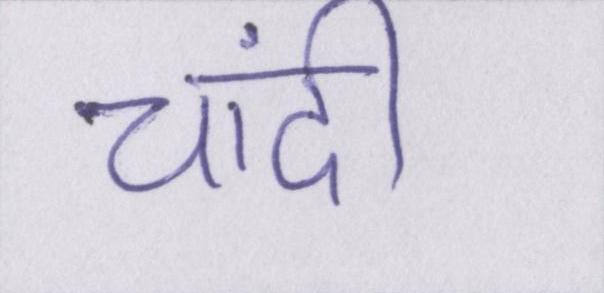 चांदी